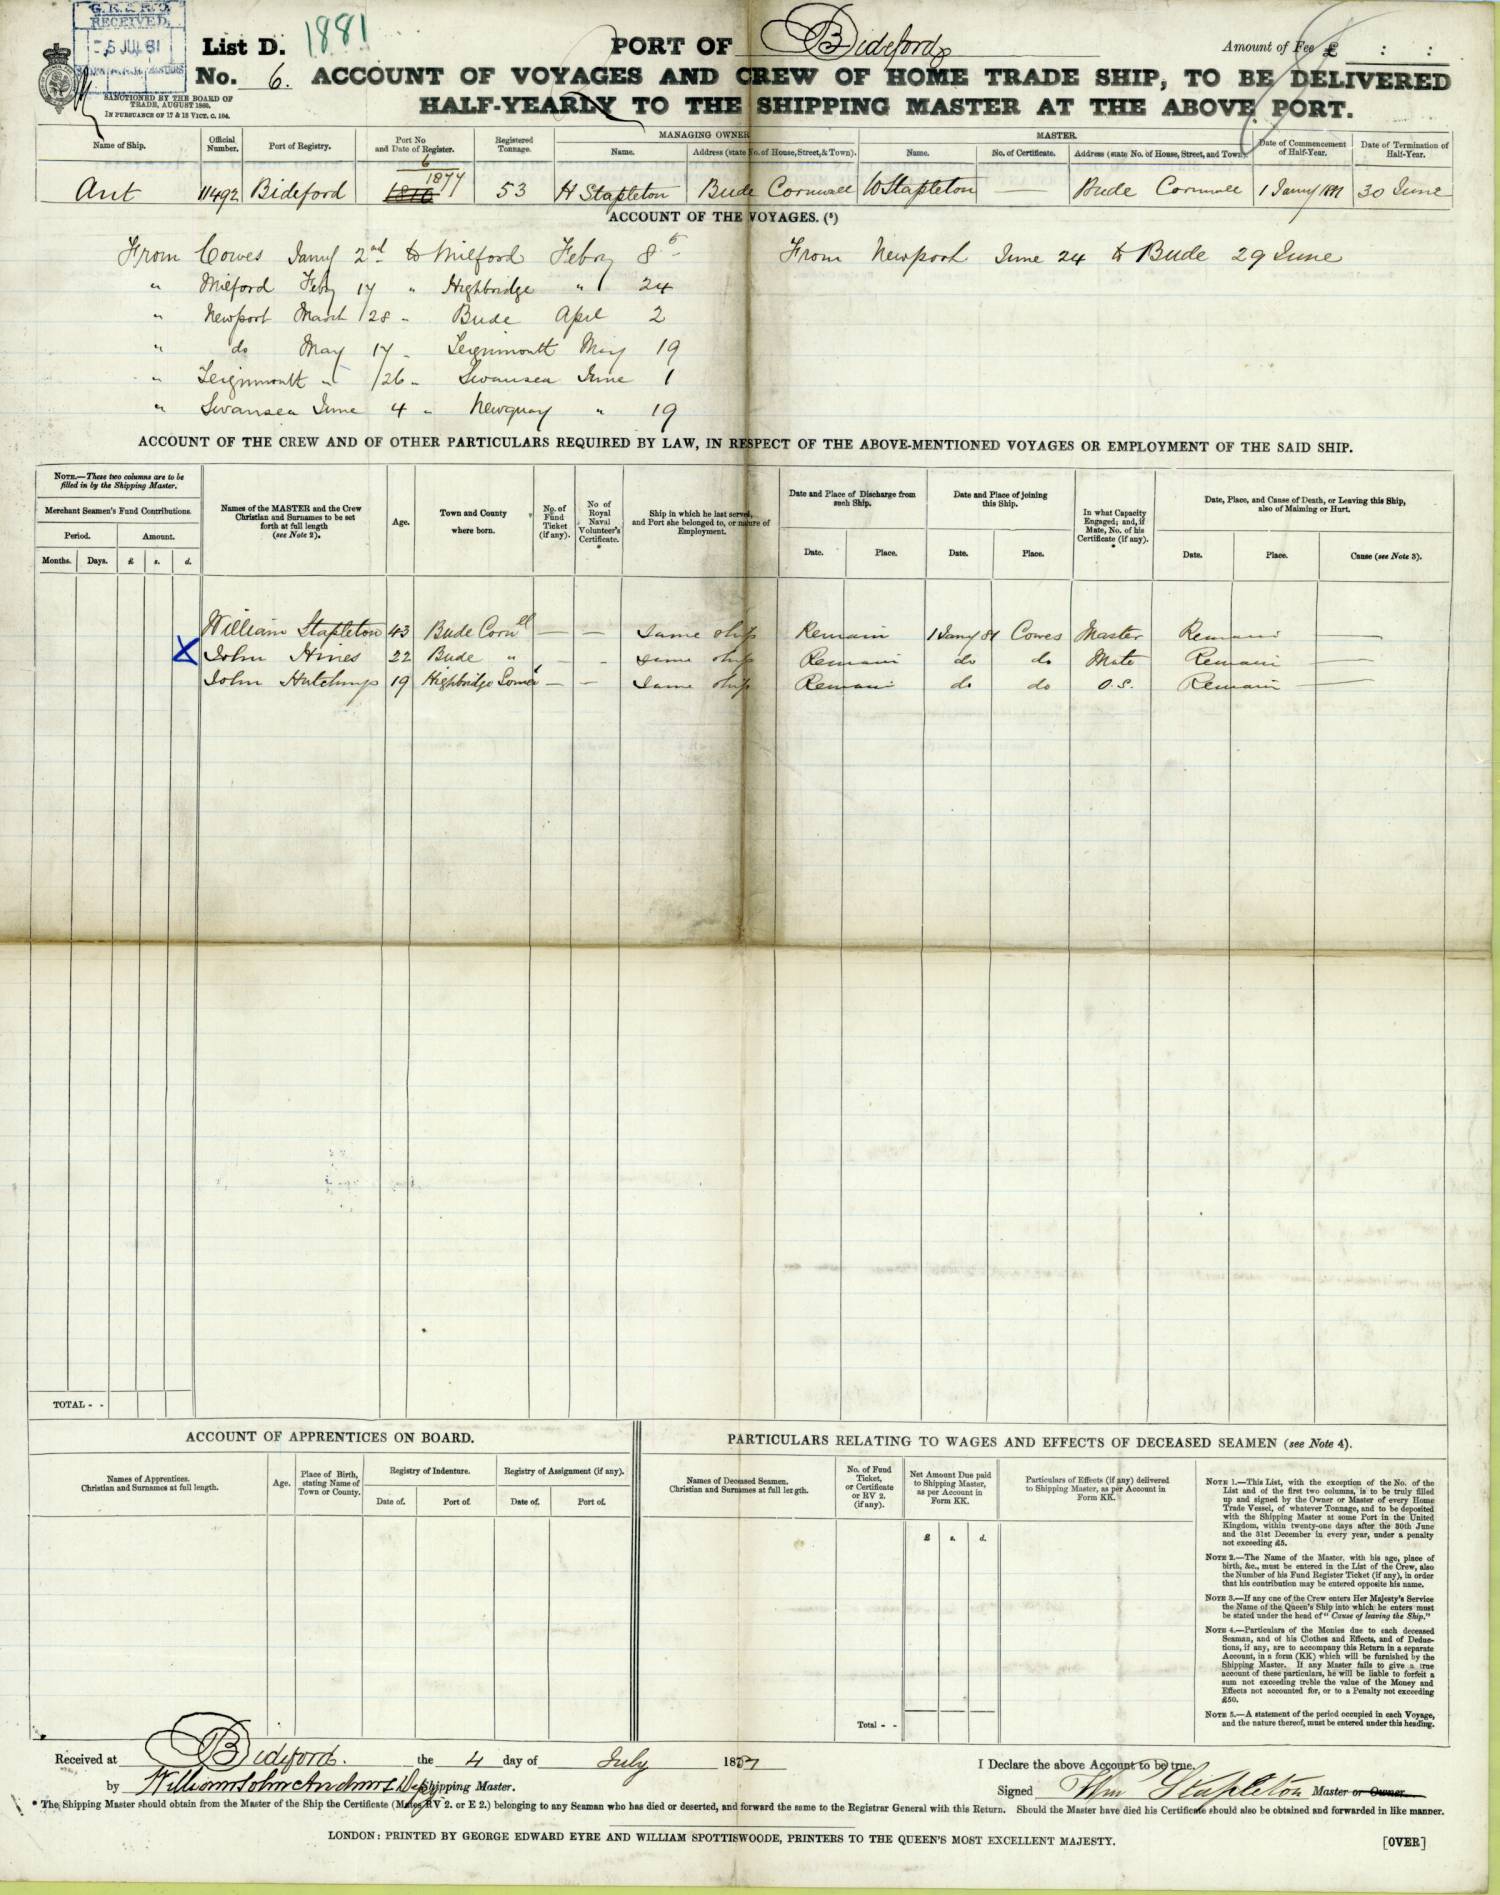 G.R.& R.O.
RECEIVED,
5 JUL 81
List D. 1881 PORT OF Bideford Amount of Fee £ : :
No. 6. ACCOUNT OF VOYAGES AND CREW OF HOME TRADE SHIP, TO BE DELIVERED
HALF-YEARLY TO THE SHIPPING MASTER AT THE ABOVE PORT.
SANCTIONED BY THE BOARD OF
TRADE, AUGUST
IN PURSUANCE OF 17 & 18 VICT. C. 104.
Name of Ship. Official Number. Port of Registry. Port No and Date of Register. Registered Tonnage. MANAGING OWNER Name. Address (state No. of House, Street, & Town). MASTER. Name. No. of Certificate. Address (state No. of House, Street, and Town). Date of Commencement of Half-Year. Date of Termination of Half-Year.
Ant 11492 Bideford 6 1877 53 H Stapleton Bude Cornwall W Stapleton — Bude Cornwall 1 Jany 30 June
ACCOUNT OF THE VOYAGES. (⁵)
From Cowes Jany 2nd to Milford Febry 8 From Newport June 24 to Bude 29 June
" Milford Feby 17 " Highbridge " 24
" Newport March 28 " Bude April 2
" do May 17 " Teignmouth May 19
" Teignmouth " 26 " Swansea June 1
" Swansea June 4 " Newquay " 19
ACCOUNT OF THE CREW AND OF OTHER PARTICULARS REQUIRED BY LAW, IN RESPECT OF THE ABOVE-MENTIONED VOYAGES OR EMPLOYMENT OF THE SAID SHIP.
NOTE.—These two columns are to be filled in by the Shipping Master.
Merchant Seamen's Fund Contributions.
Period. Amount.
Months. Days. £ s. d.
Names of the MASTER and the Crew Christian and Surnames to be set forth at full length (see Note 2).
Age.
Town and County where born.
No. of Fund Ticket (if any).
No of Royal Naval Volunteer's Certificate. *
Ship in which he last served, and Port she belonged to, or nature of Employment.
Date and Place of Discharge from such Ship. Date. Place.
Date and Place of joining this Ship. Date. Place.
In what Capacity Engaged; and, if Mate, No. of his Certificate (if any). *
Date, Place, and Cause of Death, or Leaving this Ship, also of Maiming or Hurt.
Date. Place. Cause (see Note 3).
William Stapleton 43 Bude Cornll — — Same ship Remain 1 Jany 81 Cowes Master Remain —
X John Hines 22 Bude " — - Same ship Remain do do Mate Remain —
John Hutchings 19 Highbridge Somer — — Same ship Remain do do O.S. Remain —
TOTAL - -
ACCOUNT OF APPRENTICES ON BOARD.
Names of Apprentices. Christian and Surnames at full length.
Age.
Place of Birth, stating Name of Town or County.
Registry of Indenture. Date of. Port of.
Registry of Assignment (if any). Date of. Port of.
PARTICULARS RELATING TO WAGES AND EFFECTS OF DECEASED SEAMEN (see Note 4).
Names of Deceased Seamen. Christian and Surnames at full length.
No. of Fund Ticket, or Certificate or RV 2. (if any).
Net Amount Due paid to Shipping Master, as per Account in Form KK.
£ s. d.
Particulars of Effects (if any) delivered to Shipping Master, as per Account in Form KK.
Total - -
NOTE 1.—This List, with the exception of the No. of the
List and of the first two columns, is to be truly filled
up and signed by the Owner or Master of every Home
Trade Vessel, of whatever Tonnage, and to be deposited
with the Shipping Master at some Port in the United
Kingdom, within twenty-one days after the 30th June
and the 31st December in every year, under a penalty
not exceeding £5.
NOTE 2.—The Name of the Master, with his age, place of
birth, &c., must be entered in the List of the Crew, also
the Number of his Fund Register Ticket (if any), in order
that his contribution may be entered opposite his name.
NOTE 3.—If any one of the Crew enters Her Majesty's Service
the Name of the Queen's Ship into which he enters must
be stated under the head of "Cause of leaving the Ship."
NOTE 4.—Particulars of the Monies due to each deceased
Seaman, and of his Clothes and Effects, and of Deduc-
tions, if any, are to accompany this Return in a separate
Account, in a form (KK) which will be furnished by the
Shipping Master. If any Master fails to give a true
account of these particulars, he will be liable to forfeit a
sum not exceeding treble the value of the Money and
Effects not accounted for, or to a Penalty not exceeding
£50.
NOTE 5.—A statement of the period occupied in each Voyage,
and the nature thereof, must be entered under this heading.
Received at Bideford. the 4 day of July 18 I Declare the above Account to be true.
by William John Shipping Master. Signed Wm Stapleton Master or Owner
* The Shipping Master should obtain from the Master of the Ship the Certificate (Mates, RV 2. or E 2.) belonging to any Seaman who has died or deserted, and forward the same to the Registrar General with this Return. Should the Master have died his Certificate should also be obtained and forwarded in like manner.
LONDON: PRINTED BY GEORGE EDWARD EYRE AND WILLIAM SPOTTISWOODE, PRINTERS TO THE QUEEN'S MOST EXCELLENT MAJESTY. [OVER]